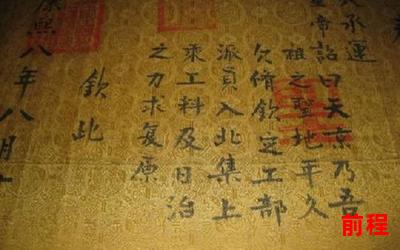 天承運
皇帝詔曰天京乃吾
祖之聖地年久
欠脩欽定工部
派員入北集上
乘工料及日治
之力求复原
欽此
康熙八年八月
前程